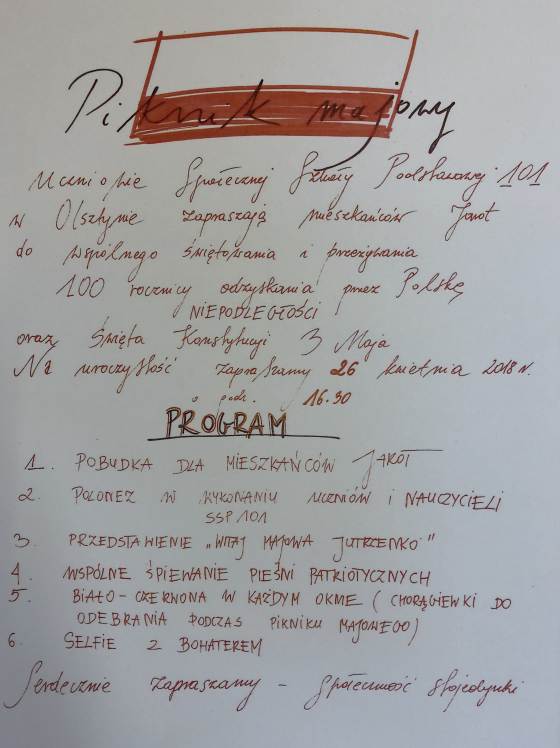 Piknik majowy
Uczniowie Społecznej Szkoły Podstawowej 101
w Olsztynie zapraszają mieszkańców Jarot
do wspólnego świętowania i przeżywania
100 rocznicy odzyskania przez Polskę
NIEPODLEGŁOŚCI
oraz Święta Konstytucji 3 Maja
Na uroczystość zapraszamy 26 kwietnia 2018 r.
o godz. 16.30
PROGRAM
1. POBUDKA DLA MIESZKAŃCÓW JAROT
2. POLONEZ W WYKONANIU UCZNIÓW I NAUCZYCIELI
SSP 101
3. PRZEDSTAWIENIE „WITAJ MAJOWA JUTRZENKO"
4. WSPÓLNE ŚPIEWANIE PIEŚNI PATRIOTYCZNYCH
5. BIAŁO-CZERWONA W KAŻDYM OKNIE (CHORĄGIEWKI DO
ODEBRANIA PODCZAS PIKNIKU MAJOWEGO)
6. SELFIE Z BOHATEREM
Serdecznie zapraszamy - Społeczność Stojedynki